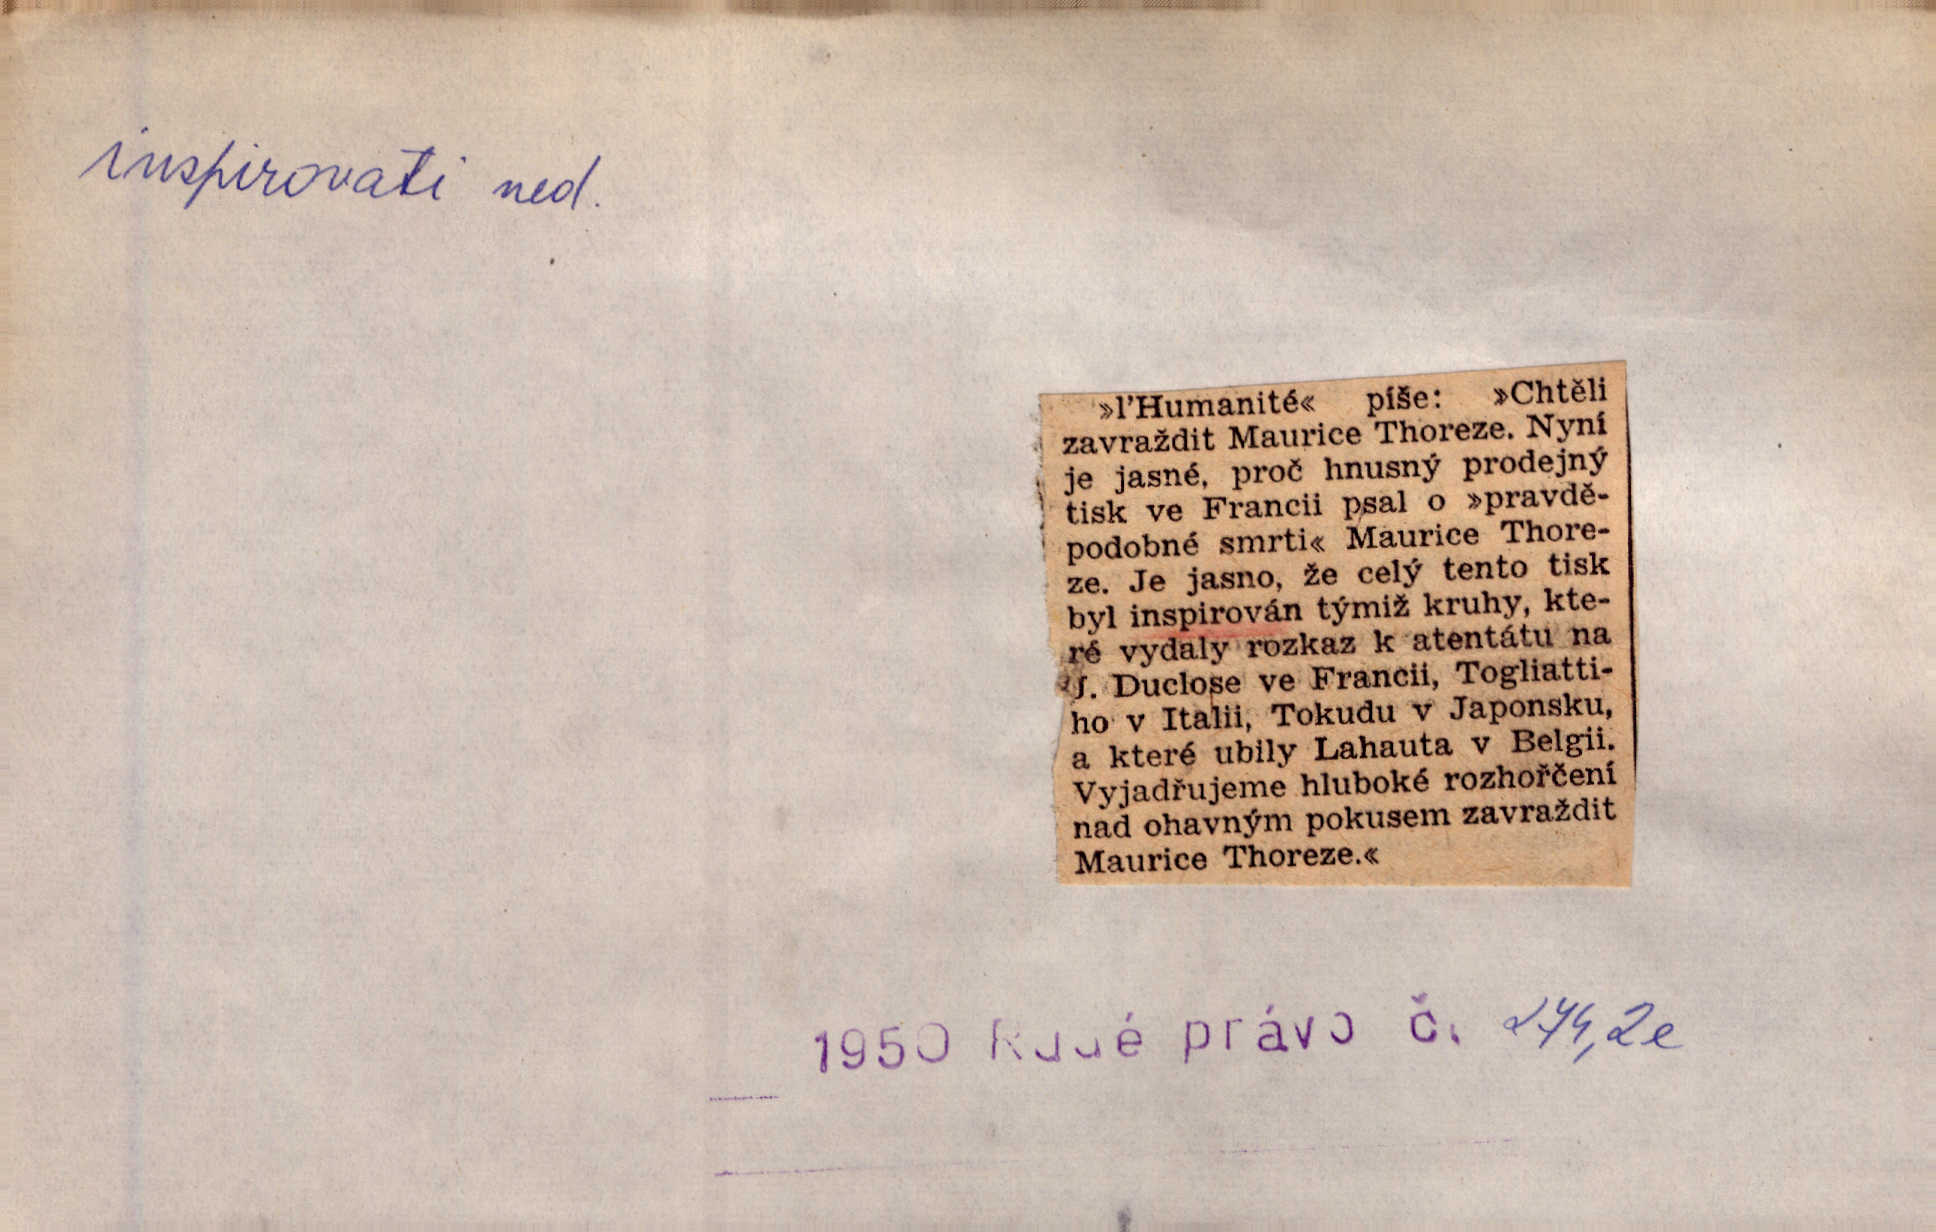 inspirovati ned.
»l'Humanité« píše: »Chtěli
zavraždit Maurice Thoreze. Nyní
je jasné, proč hnusný prodejný
tisk ve Francii psal o »pravdě-
podobné smrti« Maurice Thore-
ze. Je jasno, že celý tento tisk
byl inspirován týmiž kruhy, kte-
ré vydaly rozkaz k atentátu na
J. Duclose ve Francii, Togliatti-
ho v Italii, Tokudu v Japonsku,
a které ubily Lahauta v Belgii.
Vyjadřujeme hluboké rozhořčení
nad ohavným pokusem zavraždit
Maurice Thoreze.«
1950 Rudé právo č. 274,2e